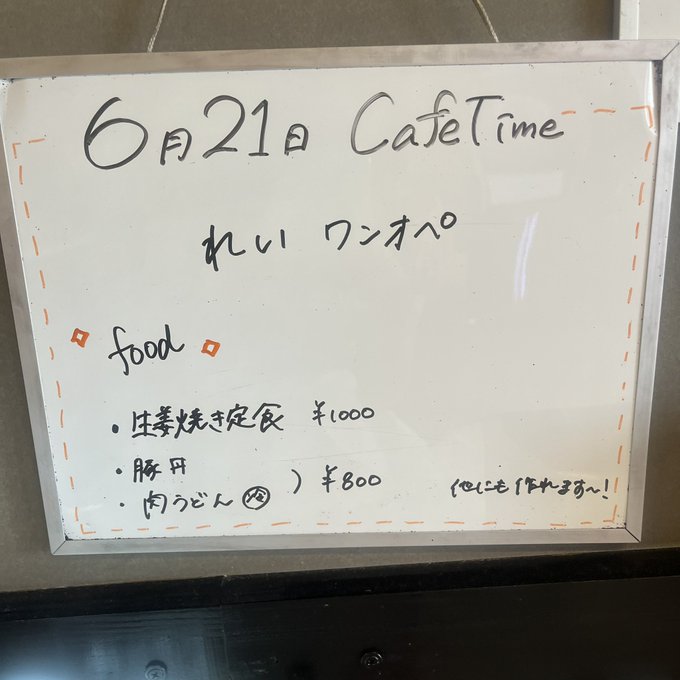 6月21日 CafeTime
れい ワンオペ
food
・生姜焼き定食 ¥1000
・豚丼
・肉うどん ) ¥800
他にも作れます〜!